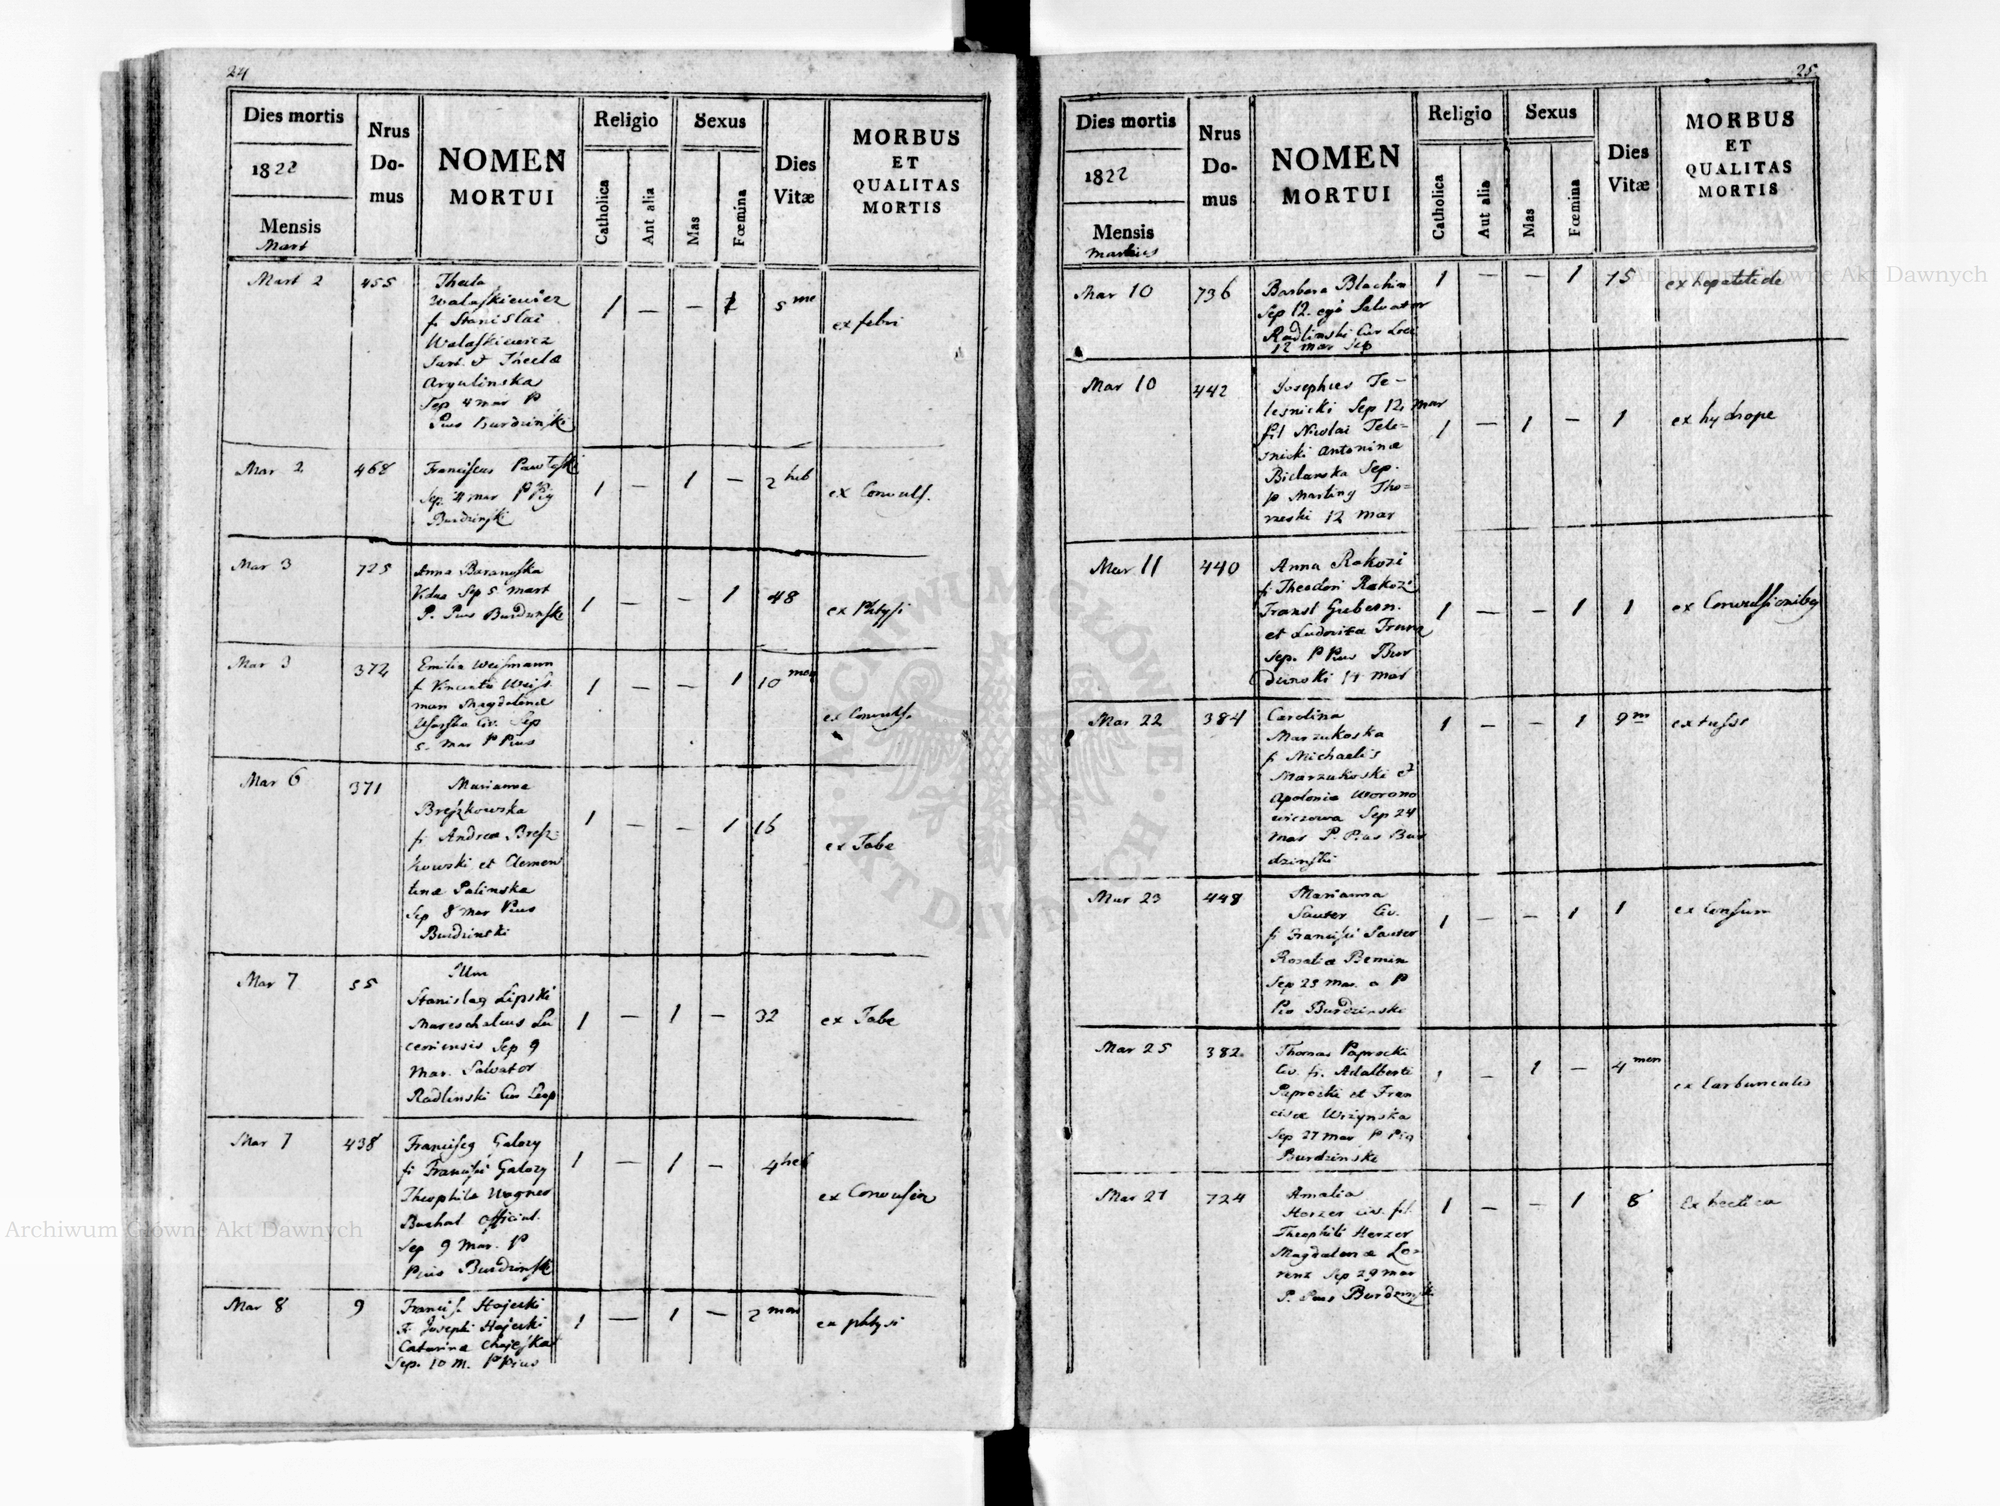 24
Dies mortis
1822
Mensis
Mart
Nrus
Do-
mus
NOMEN
MORTUI
Religio
Catholica
Aut alia
Sexus
Mas
Fœmina
Dies
Vitæ
MORBUS
ET
QUALITAS
MORTIS
Mart 2
455
Thecla
Walaszkiewicz
f. Stanislai
Walaszkiewicz
et Theclæ
Sep 4 mar P
Pius Burdzinski
1 — — 1
5 me
ex febri
Mar 2
468
Franciscus
Sep. 4 mar P Pig
Burdzinski
1 — 1 —
2 heb
ex Convuls.
Mar 3
725
Anna Baranyska
Vidua Sep 5 Mart
P. Pius Burdzinski
1 — — 1
48
ex Phtysi
Mar 3
372
Emilia Weismann
f. Vincenti Weiss
man Magdalenæ
Civ. Sep
5. Mar P Pius
1 — — 1
10 mon
ex Convuls.
Mar 6
371
Marianna
Breszkowska
fi Andreæ Bresz-
kowski et Clemen
tinæ Palinska
Sep 8 Mar Pius
Burdzinski
1 — — 1
16
ex Tabe
Mar 7
55
Illm
Stanislag Lipski
Mareschalcus
Sep 9
Mar. Salvator
Radlinski Cur Leop
1 — 1 —
32
ex Tabe
Mar 7
438
Franciscg Galozy
fi Francisci Galozy
Theophila Wagner
Buchal. official.
Sep 9 Mar. P
Pius Burdzinski
1 — 1 —
4 heb
ex Convulsion
Mar 8
9
Francis. Hajeski
fi. Josephi Hajeski
Catarina Chajeska
Sep. 10 M. P Pius
1 — 1 —
2 mon
ex phtysi
25
Dies mortis
1822
Mensis
Martius
Nrus
Do-
mus
NOMEN
MORTUI
Religio
Catholica
Aut alia
Sexus
Mas
Fœmina
Dies
Vitæ
MORBUS
ET
QUALITAS
MORTIS
Mar 10
736
Barbara Blachin
Sep 12. Salvator
Radlinski Cur Loci
12 mar Sep
1 — — 1
75
ex hepatitide
Mar 10
442
Josephus Te-
lesnicki Sep 12 mar
fil Nicolai Tele-
snicki Antoninæ
Bielawska Sep.
p Marting Tho-
rzeski 12 Mar
1 — 1 —
1
ex hydrope
Mar 11
440
Anna Rakozi
f. Theodori Rakozi
Transl Gubern.
et Ludovica Frunz
sep. P Pius Bur
dzinski 14 Mar
1 — — 1
1
ex Convulsionibg
Mar 22
384
Carolina
Marzukoska
f. Michaelis
Marzukoski et
Apolonia Worono
wiczowa Sep 24
Mar P. Pius Bur
dzinski
1 — — 1
9 m
ex tussi
Mar 23
448
Marianna
Sauter Civ.
fi Francisci Sauter
Rosaliæ Bemin
Sep 25 Mar. a P
Pio Burdzinski
1 — — 1
1
ex Consum
Mar 25
382
Thomas Paprocki
Civ. fi. Adalberti
Paprocki et Fran
ciscæ Wrzynska
Sep 27 Mar P Pig
Burdzinski
1 — 1 —
4 men
ex Carbunculis
Mar 27
724
Amalia
Herzer civ. fil.
Theophili Herzer
Magdalenæ Lo-
renz Sep 29 Mar
P. Pius Burdzinski
1 — — 1
8
Ex hectica
Archiwum Główne Akt Dawnych
Archiwum Główne Akt Dawnych
ARCHIWUM GŁÓWNE AKT DAWNYCH